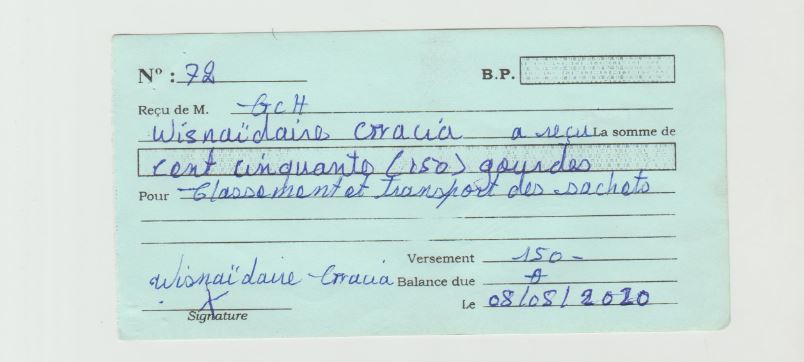 Nº : 72
B.P.
Reçu de M. GCH
Wisnaïdaire Gracia a reçu La somme de
cent cinquante (150) gourdes
Pour Classement et transport des sachets
Versement 150-
Wisnaïdaire Gracia Balance due 0
Le 08/08/2020
Signature